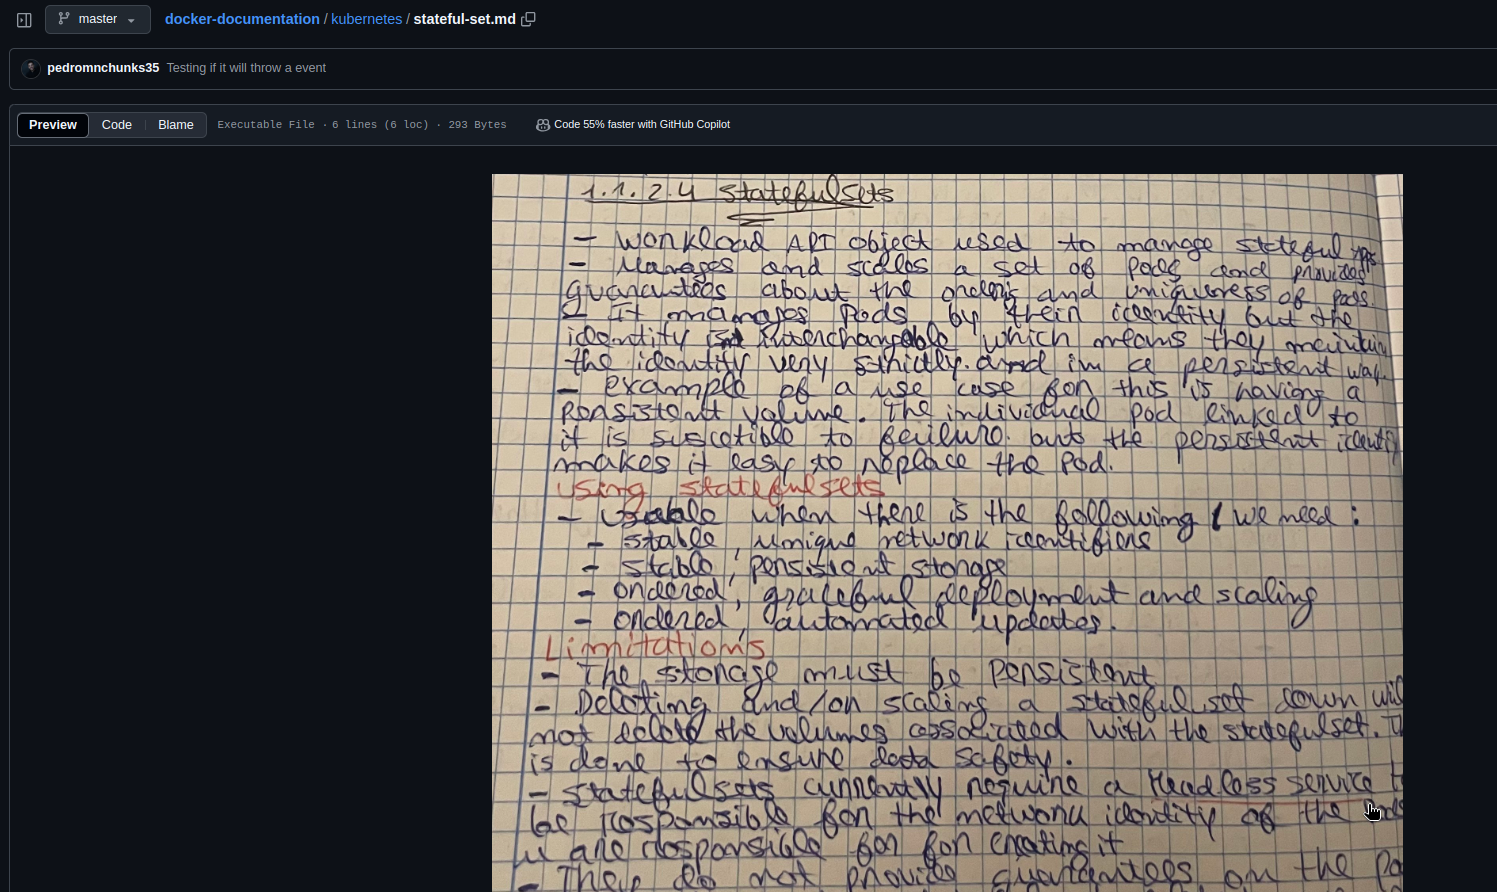 master
docker-documentation / kubernetes / stateful-set.md
pedromnchunks35 Testing if it will throw a event
Preview Code Blame Executable File · 6 lines (6 loc) · 293 Bytes Code 55% faster with GitHub Copilot
1.1.2.4 statefulsets
- workload API object used to manage stateful apps
- Manages and scales a set of Pods and provides
guarantees about the orders and uniqueness of pods.
- It manages Pods by their identity but the
identity interchangable which means they maintain
the identity very strictly. and in a persistent way.
- example of a use case for this is having a
persistent volume. The individual pod linked to
it is suscetible to failure. but the persistent identity
makes it easy to replace the Pod.
Using statefulsets
- Usable when there is the following / we need :
- stable, unique network identifiers
- stable, persistent storage
- ordered, graceful deployment and scaling
- ordered, automated updates.
Limitations
- The storage must be persistent
- Deleting and/or scaling a stateful set down will
not delete the volumes associated with the statefulset. Th
is done to ensure data safety.
- statefulsets currently require a Headless service to
be responsible for the network identity of the Pods
u are responsible for for creating it
- They do not provide guarantees on the Po